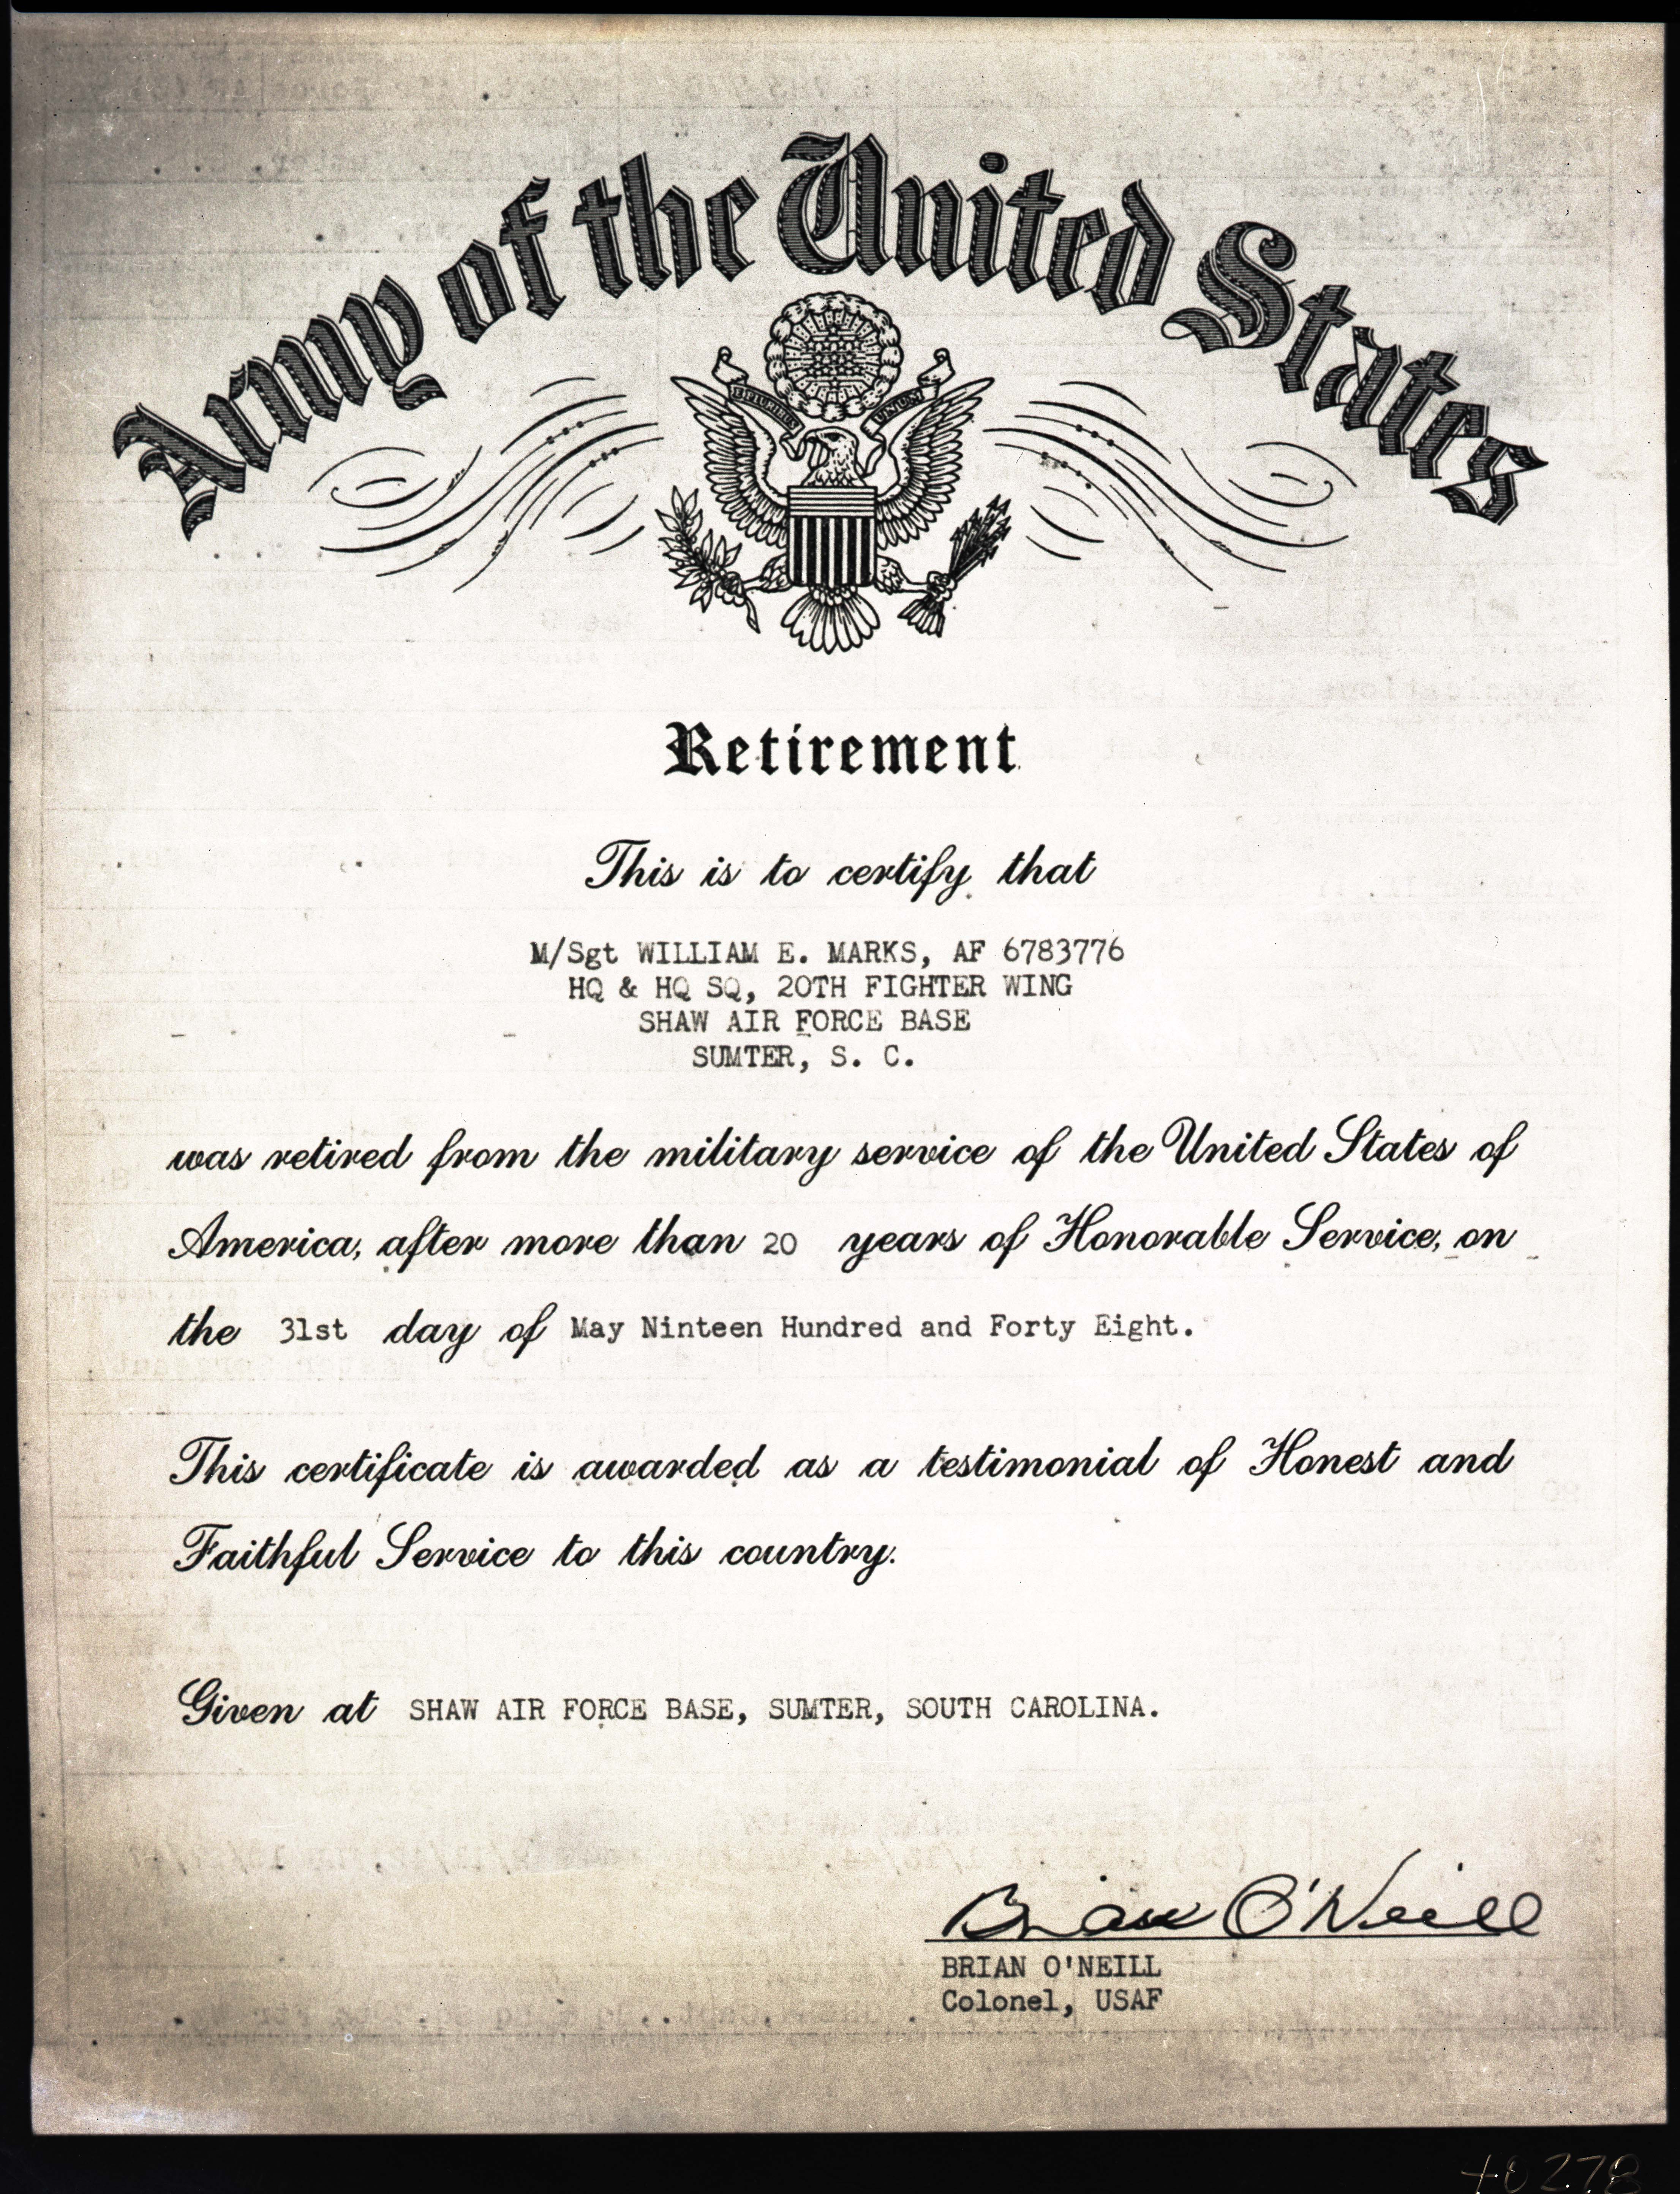 Army of the United States
E PLURIBUS UNUM
Retirement
This is to certify that
M/Sgt WILLIAM E. MARKS, AF 6783776
HQ & HQ SQ, 20TH FIGHTER WING
SHAW AIR FORCE BASE
SUMTER, S. C.
was retired from the military service of the United States of
America, after more than 20 years of Honorable Service, on
the 31st day of May Ninteen Hundred and Forty Eight.
This certificate is awarded as a testimonial of Honest and
Faithful Service to this country.
Given at SHAW AIR FORCE BASE, SUMTER, SOUTH CAROLINA.
Brian O'Neill
BRIAN O'NEILL
Colonel, USAF